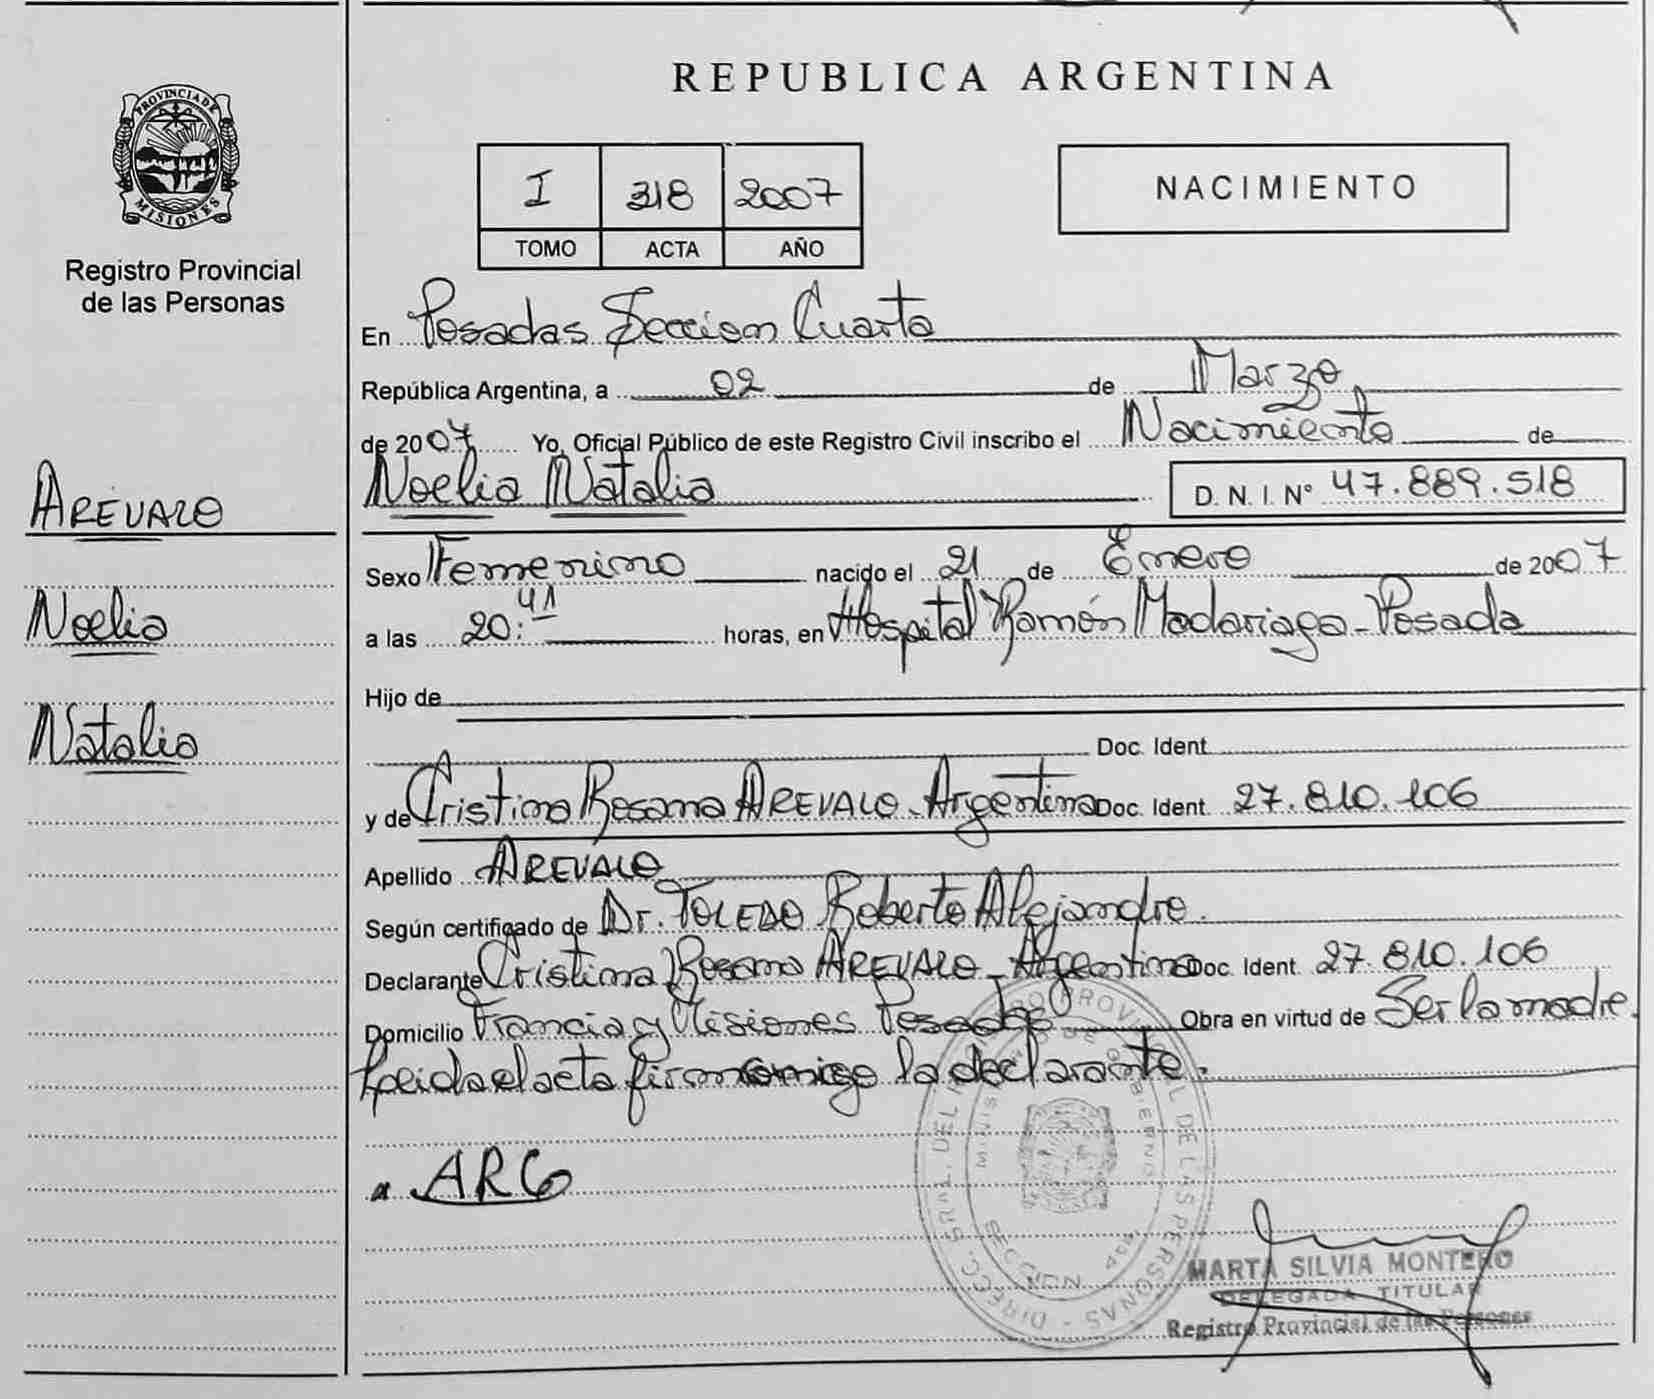 PROVINCIA DE
MISIONES
Registro Provincial
de las Personas
AREVALO
Noelia
Natalia
REPUBLICA ARGENTINA
I 318 2007
TOMO ACTA AÑO
NACIMIENTO
En Posadas Seccion Cuarta
República Argentina, a 02 de Marzo
de 2007 Yo, Oficial Público de este Registro Civil inscribo el Nacimiento de
Noelia Natalia D. N. I. N° 47.889.518
Sexo Femenino nacido el 21 de Enero de 2007
a las 20:41 horas, en Hospital Ramón Madariaga - Posada
Hijo de
Doc. Ident.
y de Cristina Rosana AREVALO - Argentina Doc. Ident. 27.810.106
Apellido AREVALO
Según certificado de Dr. TOLEDO Roberto Alejandro.
Declarante Cristina Rosana AREVALO - Argentina Doc. Ident. 27.810.106
Domicilio Francia y Misiones Posadas Obra en virtud de Ser la madre.
Leida el acta firma conmigo la declarante.
ARG
MARTA SILVIA MONTERO
DELEGADA TITULAR
Registro Provincial de las Personas